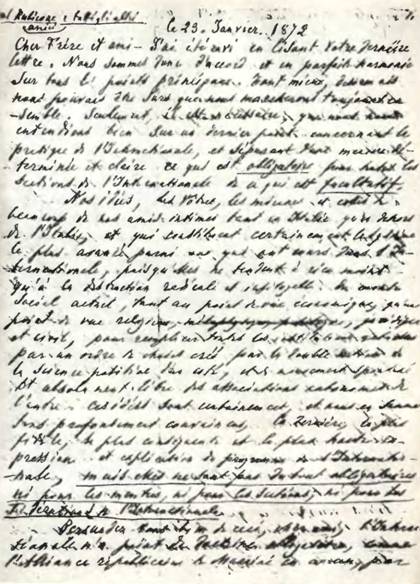 al Rubicone e tutti gli altri
amici
le 23. Janvier. 1872
Cher Frère et ami — J'ai été ravi en lisant votre dernière
lettre. Nous sommes donc d'accord et en parfaite harmonie
sur tous les points principaux. Tant mieux, désormais
nous pouvons être sûrs que nous marcherons toujours en-
semble. Seulement, il est nécessaire, que nous nous
entendions bien sur un dernier point concernant la
pratique de l'Internationale, et dé
terminée et claire ce qui est obligatoire pour toutes les
Sections de l'Internationale de ce qui est facultatif.
Nos idées, les vôtres, les miennes et celles de
beaucoup de nos amis intimes tant en Italie que dehors
de l'Italie, et qui constituent certainement le
le plus avancé parmi ceux qui ont cours dans l'In-
ternationale, puisqu'elles ne tendent à rien moins
qu'à la destruction radicale et du monde
social actuel, tant au point de vue économique, qu'au
point de vue religieux, juridique
et civil, pour remplacer toutes les institutions
par un ordre de choses créé par la double action de
la science positive d'un côté, et du mouvement spontané
et absolument libre des associations autonomes de
l'autre — ces idées sont certainement, et nous en sommes
tous profondément convaincus, la dernière, la plus
fidèle, la plus conséquente et la plus haute ex-
pression et explication du programme de l'Internatio-
nale, mais elles ne sont pas du tout obligatoires
ni pour les membres, ni pour les sections, ni pour les
Fédérations de l'Internationale.
l'Inter
nationale n'a point de obligatoire, comme
l'Alliance républicaine de Mazzini en avait, par